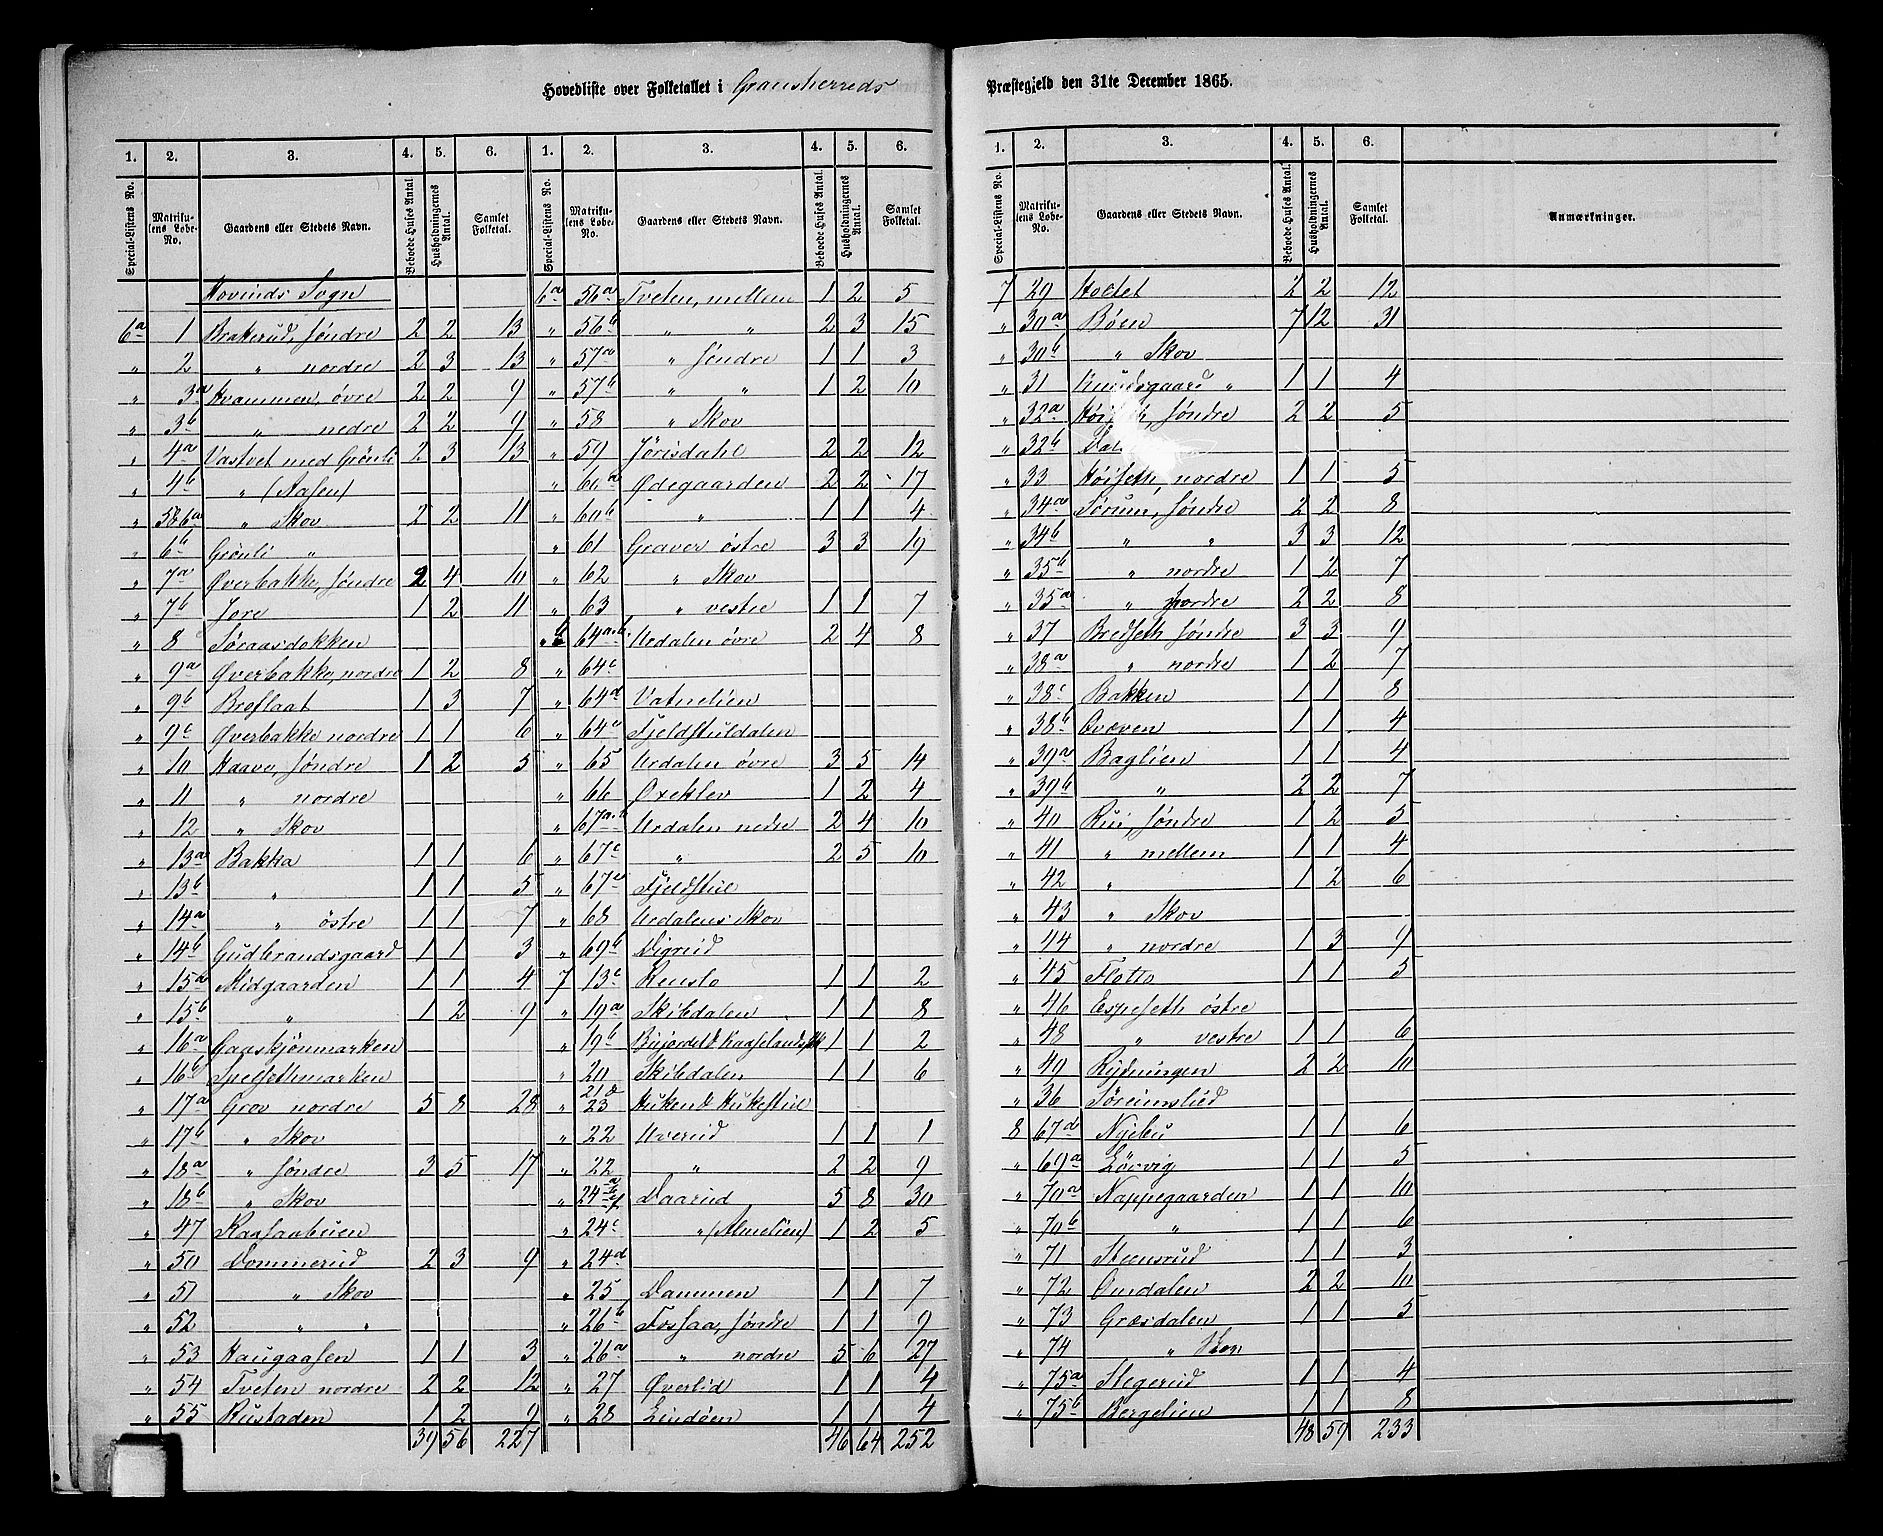 Hovedliste over Folketallet i Gransherreds
1. 2. 3. 4. 5. 6. 1. 2. 3. 4. 5. 6.
Special-Listens No. Matrikulens Løbe-No. Gaardens eller Stedets Navn. Beboede Huses Antal Husholdningernes Antal. Samlet Folketal. Special-Listens No. Matrikulens Løbe-No. Gaardens eller Stedets Navn. Beboede Huses Antal. Husholdningernes Antal Samlet Folketal.
Hovinds Sogn
6a 1 Brakerud, søndre 2 2 13
" 2 " nordre 2 3 13
" 3a Hvammen, øvre 2 2 9
" 3b " nedre 2 2 9
" 4a Vastvet med Grønli 2 3 13
" 4b " (Aasen)
" 5&6a " Skov 2 2 11
" 6b Grønli "
" 7a Øverbakke, søndre 2 4 10
" 7b Jore 1 2 11
" 8 Søraasdokken
" 9a Øverbakke, nordre 1 2 8
" 9b Broflaat 1 3 7
" 9c Øverbakke nordre 1 1 6
" 10 Haave, søndre 1 2 5
" 11 " nordre
" 12 " Skov
" 13a Bakka 1 1 6
" 13b " 1 1 5
" 14a " østre 1 1 7
" 14b Gudbrandsgaard 1 1 3
" 15a Midgaarden 1 1 4
" 15b " 1 2 9
" 16a Gaaskjønmarken
" 16b Spelsethmarken
" 17a Grov nordre 5 8 28
" 17b " Skov
" 18a " søndre 3 5 17
" 18b " Skov
" 47 Raasaabuen
" 50 Dommerud 2 3 9
" 51 " Skov
" 52 " "
" 53 Haugaasen 1 1 3
" 54 Tveten nordre 2 2 12
" 55 Rustaden 1 2 9
39 56 227
6a 56a Tveten, mellem 1 2 5
" 56b " " 2 3 15
" 57a " søndre 1 1 3
" 57b " " 1 2 10
" 58 " Skov
" 59 Jørisdahl 2 2 12
" 60a Ødegaarden 2 2 17
" 60b " 1 1 4
" 61 Graver østre 3 3 19
" 62 " Skov
" 63 " vestre 1 1 7
" 64a.b. Urdalen øvre 2 4 8
" 64c
" 64d Vatnelien
" 64e Fjeldstuldalen
" 65 Urdalen øvre 3 5 14
" 66 Oxeklev 1 2 4
" 67a.b Urdalen nedre 2 4 10
" 67c " 2 5 10
" 67e Fjeldstul
" 68 Urdalens Skov
" 69b Digrud
7 13c Rensto 1 1 2
" 19a Skibdalen 1 1 8
" 19b 1 1 2
" 20 Skibdalen 1 1 6
" 21& 23 Huken & Hukestul
" 22 Uverud 1 1 1
" 22 " 2 2 9
" 24 Daarud 5 8 30
" 24c " (Almelien) 1 2 5
" 24d
" 25 Dammen 1 1 7
" 26b Fossaa, søndre 1 1 9
" 26a " nordre 5 6 27
" 27 Øverlid 1 1 4
" 28 Lindøen 1 1 4
46 64 252
Præstegjeld den 31te December 1865.
1. 2. 3. 4. 5. 6.
Special-Listens No. Matrikulens Løbe-No. Gaardens eller Stedets Navn. Beboede Huses Antal Husholdningernes Antal. Samlet Folketal. Anmærkninger.
7 29 Holtet 2 2 12
" 30a Bøen 7 12 31
" 30b " Skov
" 31 Kundsgaard " 1 1 4
" 32a søndre 2 2 5
" 32b
" 33 Høiseth, nordre 1 1 5
" 34a Sørum, søndre 2 2 8
" 34b " " 3 3 12
" 35b " nordre 1 2 7
" 35a " nordre 2 2 8
" 37 Bredseth søndre 3 3 9
" 38a " nordre 1 2 7
" 38c Bakken 1 1 8
" 38b Qvæven 1 1 4
" 39a Baglien 1 1 4
" 39b " 2 2 7
" 40 Rui, søndre 1 2 5
" 41 " mellem 1 1 4
" 42 " 1 2 6
" 43 " Skov
" 44 " nordre 1 3 9
" 45 Flotto 1 1 5
" 46 Espeseth østre
" 48 " vestre 1 1 6
" 49 Rydningen 2 2 10
" 36 Sørumslid
8 67d Nyebu 1 1 6
" 69a Løvvig 1 1 5
" 70a Nappegaarden 1 1 10
" 70b " 1 1 6
" 71 Steensrud 1 1 3
" 72 Omdalen 2 2 10
" 73 Græsdalen 1 1 5
" 74 " Skov
" 75a Stegerud 1 1 4
" 75b Bergelien 1 1 8
48 59 233